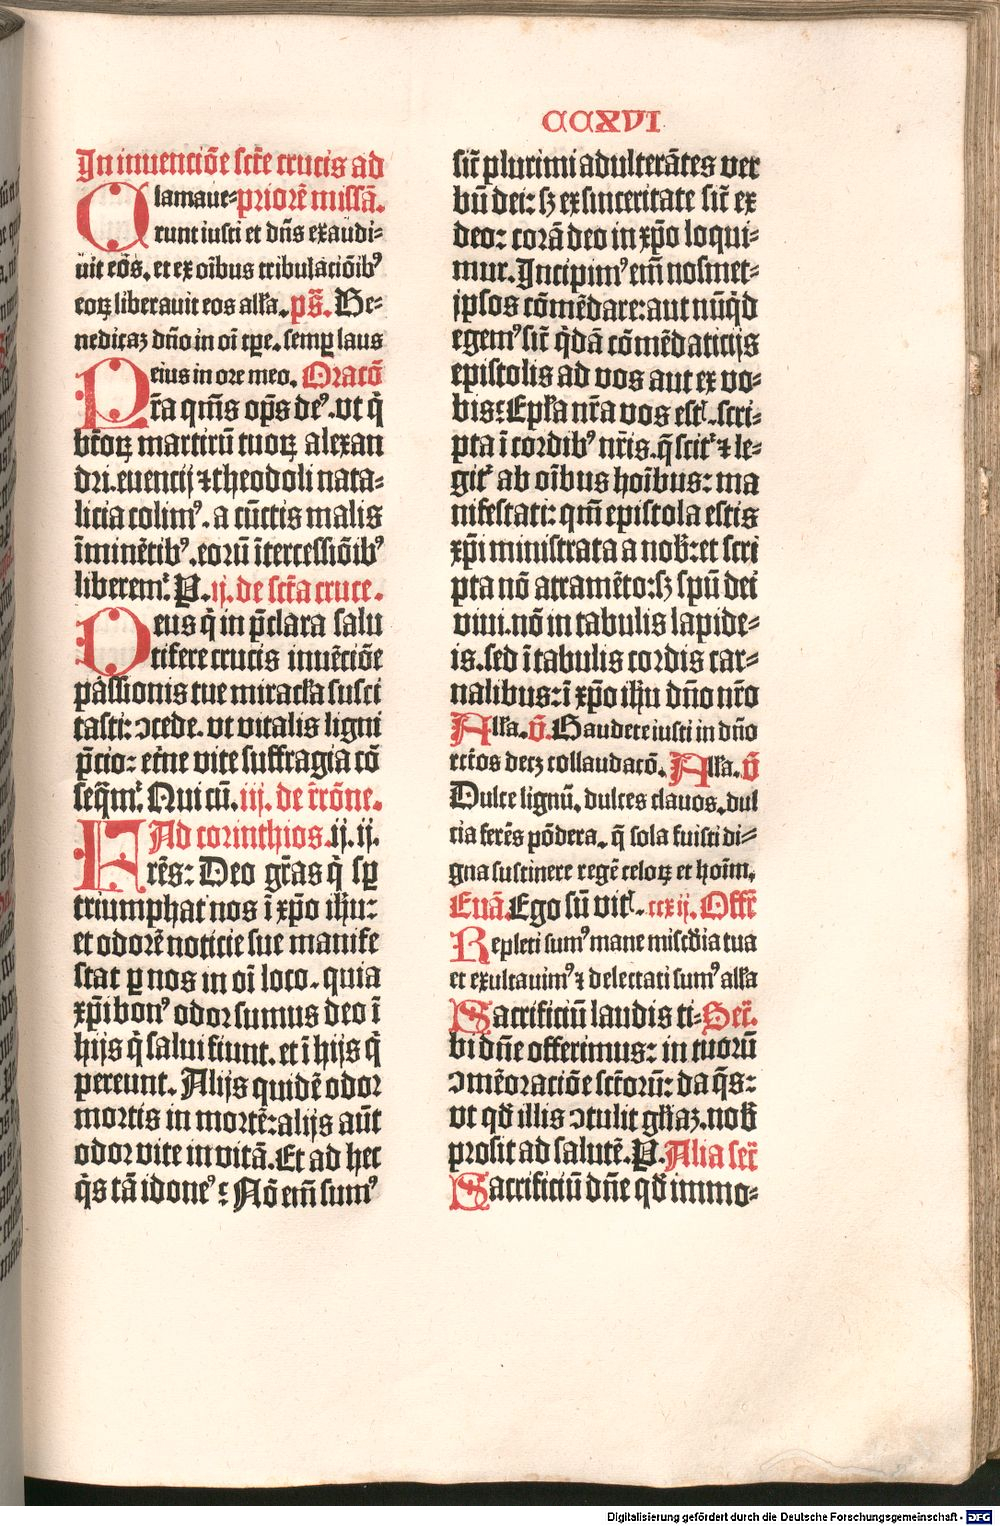 CCXVI
In inuenciōe sctē crucis ad
Clamaue=priorē missā.
runt iusti et dn̄s exaudi=
uit eōs. et ex oībus tribulaciōibꝰ
eoꝝ liberauit eos alľa. pš. Be=
nedicaꝫ dn̄o in oī tpe. semꝑ laus
eius in ore meo. Oracō
Pr̄a qm̄s opš deꝰ. vt q̄
btōꝝ martirū tuoꝝ alexan
dri. euencij ⁊ theodoli nata=
licia colimꝰ. a cūctis malis
īminētibꝰ. eorū ītercessiōibꝰ
liberemᷣ. P. ij. de sctā cruce.
Deus q̄ in p̄clara salu
tifere crucis inuēciōe
passionis tue miracľa susci
tasti: ↄcede. vt vitalis ligni
p̄cio: etn̄e vite suffragia cō
seq̄mᷣ. Qui cū. iij. de r̄rōne.
Ad corinthios. ij. ij.
Frēs: Deo gr̄as q̄ sꝑ
triumphat nos ī xp̄o ihū:
et odorē noticie sue manife
stat ꝑ nos in oī loco. quia
xp̄i bonꝰ odor sumus deo ī
hijs q̄ salui fiunt. et ī hijs q̄
pereunt. Alijs quidē odor
mortis in mortē: alijs aūt
odor vite in vitā. Et ad hec
q̄s tā idoneꝰ: Nō em̄ sumꝰ
sic̄ plurimi adulterātes ver
bū dei: sꝫ ex sinceritate sic̄ ex
deo: corā deo in xp̄o loqui=
mur. Incipimꝰ em̄ nosmet=
ipsos cōmēdare: aut nūqͥd
egemꝰ sic̄ q̄dā cōmēdaticijs
epistolis ad vos aut ex vo=
bis: Epľa nr̄a vos estᷣ. scri=
pta ī cordibꝰ nr̄is. q̄ scitᷣ ⁊ le=
gitᷣ ab oībus hoībus: ma
nifestati: qm̄ epistola estis
xp̄i ministrata a nob̄: et scri
pta nō atramēto: sꝫ spū dei
viui. nō in tabulis lapide=
is. sed ī tabulis cordis car=
nalibus: ī xp̄o ihū dn̄o nr̄o
Alľa. v̄. Gaudete iusti in dn̄o
rectōs decꝫ collaudacō. Alľa. v̄
Dulce lignū. dulces clauos. dul
cia ferēs pōdera. q̄ sola fuisti di=
gna sustinere regē celoꝝ et hoīm.
Euā. Ego sū vitᷣ. ccxij. Offr̄
Repleti sumꝰ mane misc̄dia tua
et exultauimꝰ ⁊ delectati sumꝰ alľa
Sacrificiū laudis ti=Secr̄.
bi dn̄e offerimus: in tuorū
ↄmēoraciōe sctōrū: da q̄s:
vt qd̄ illis ↄtulit gľiaꝫ. nob̄
prosit ad salutē. P. Alia secr̄
Sacrificiū dn̄e qd̄ immo=
Digitalisierung gefördert durch die Deutsche Forschungsgemeinschaft - DFG